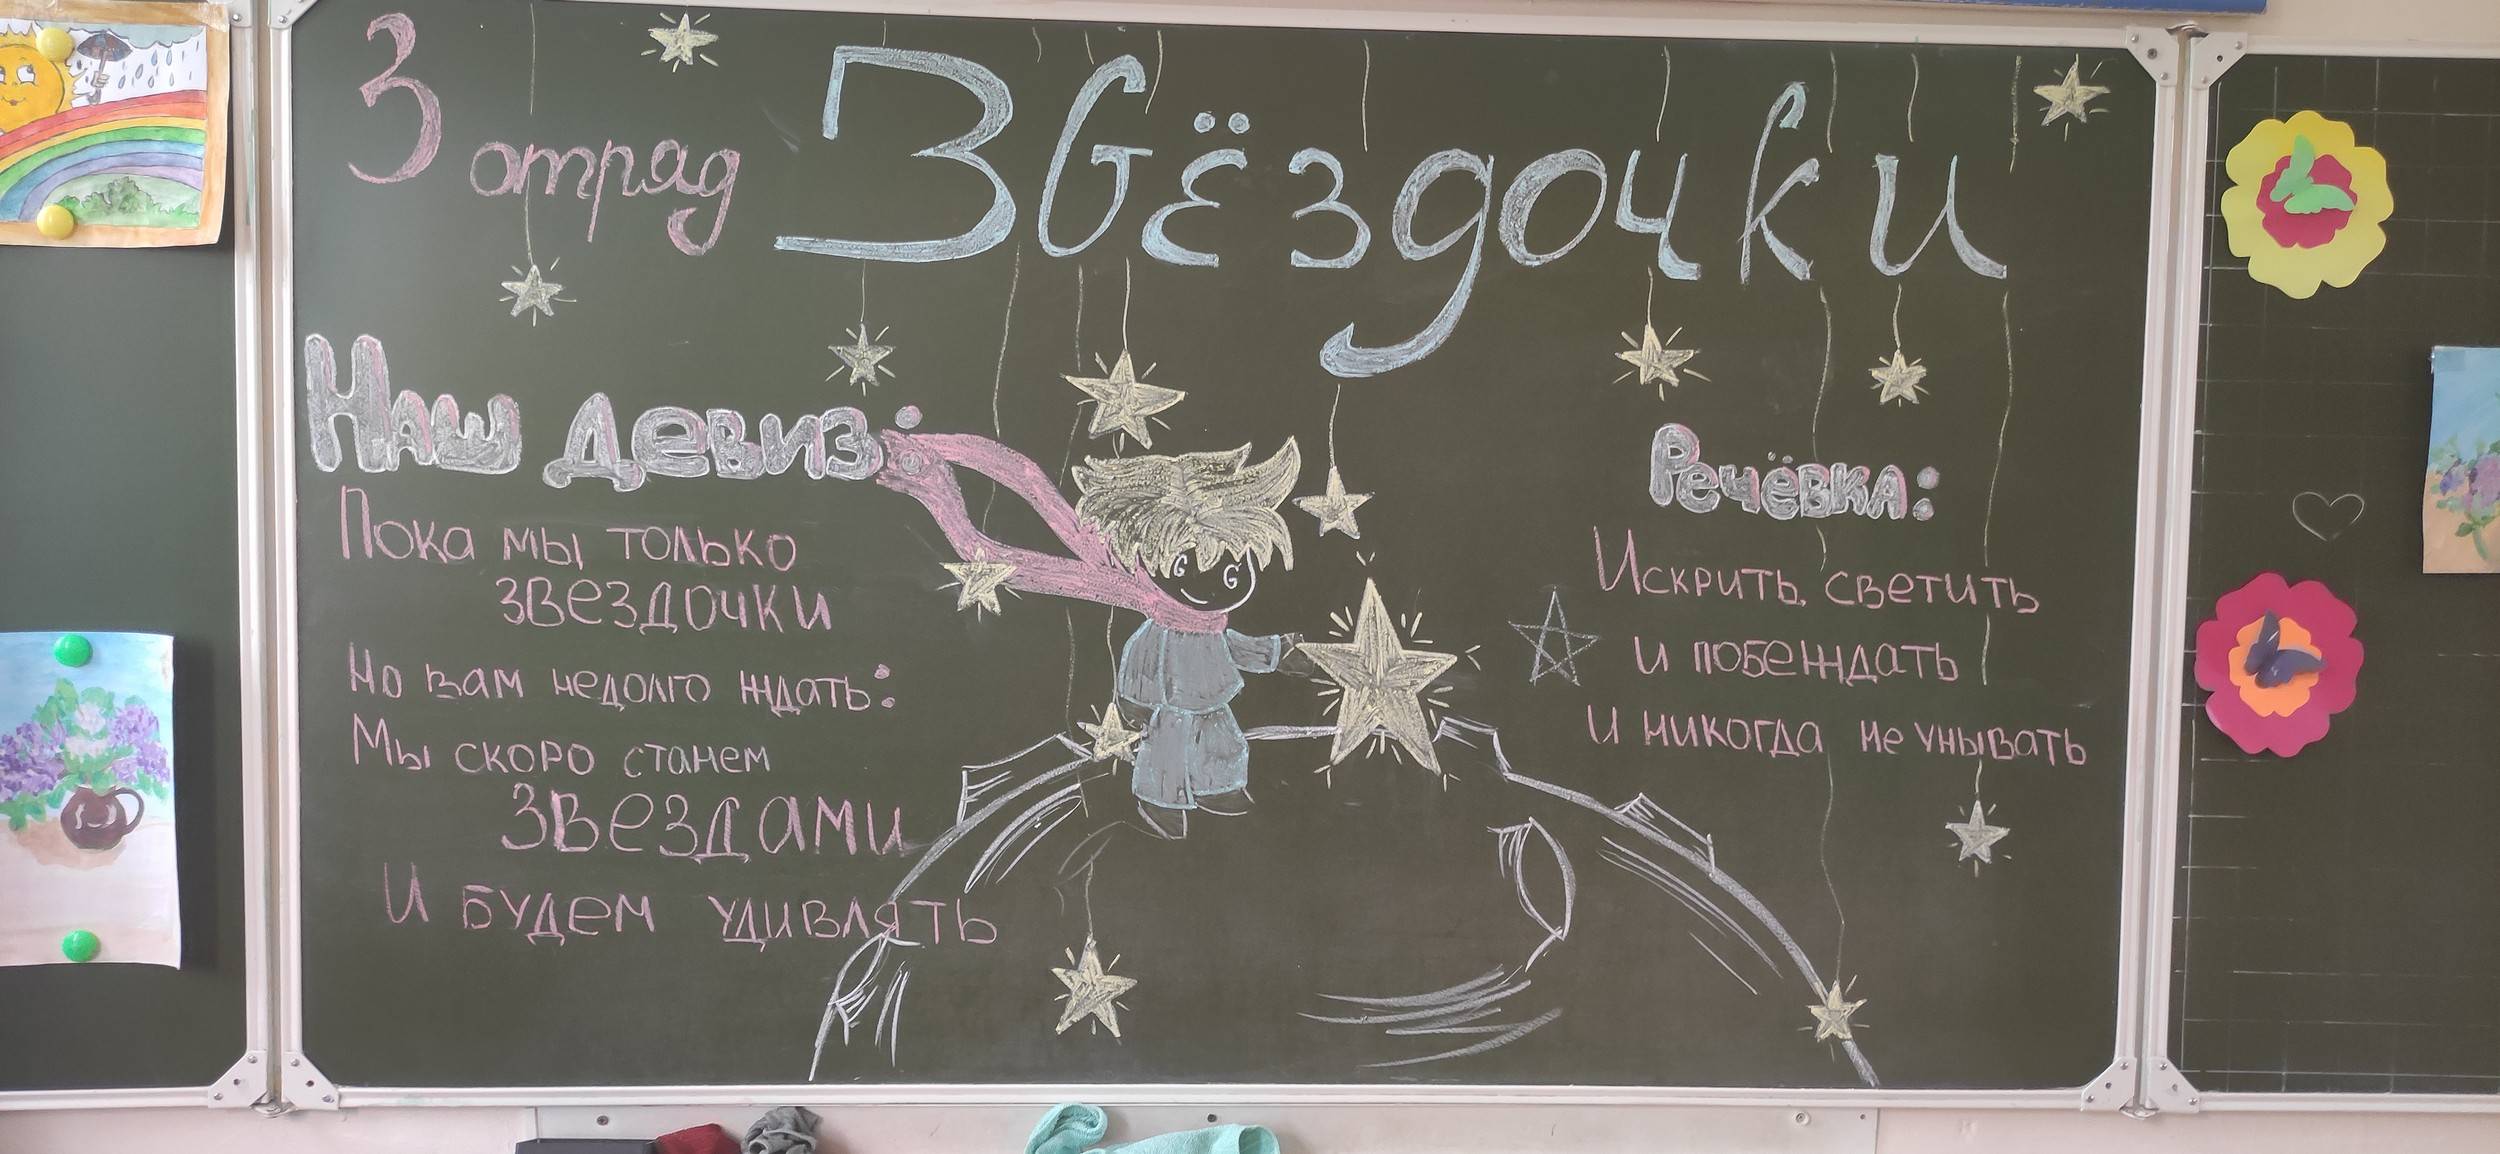 3 отряд Звёздочки
Наш девиз:
Пока мы только
звездочки
Но вам недолго ждать:
Мы скоро станем
звездами
И будем удивлять
Речёвка:
Искрить, светить
и побеждать
и никогда не унывать